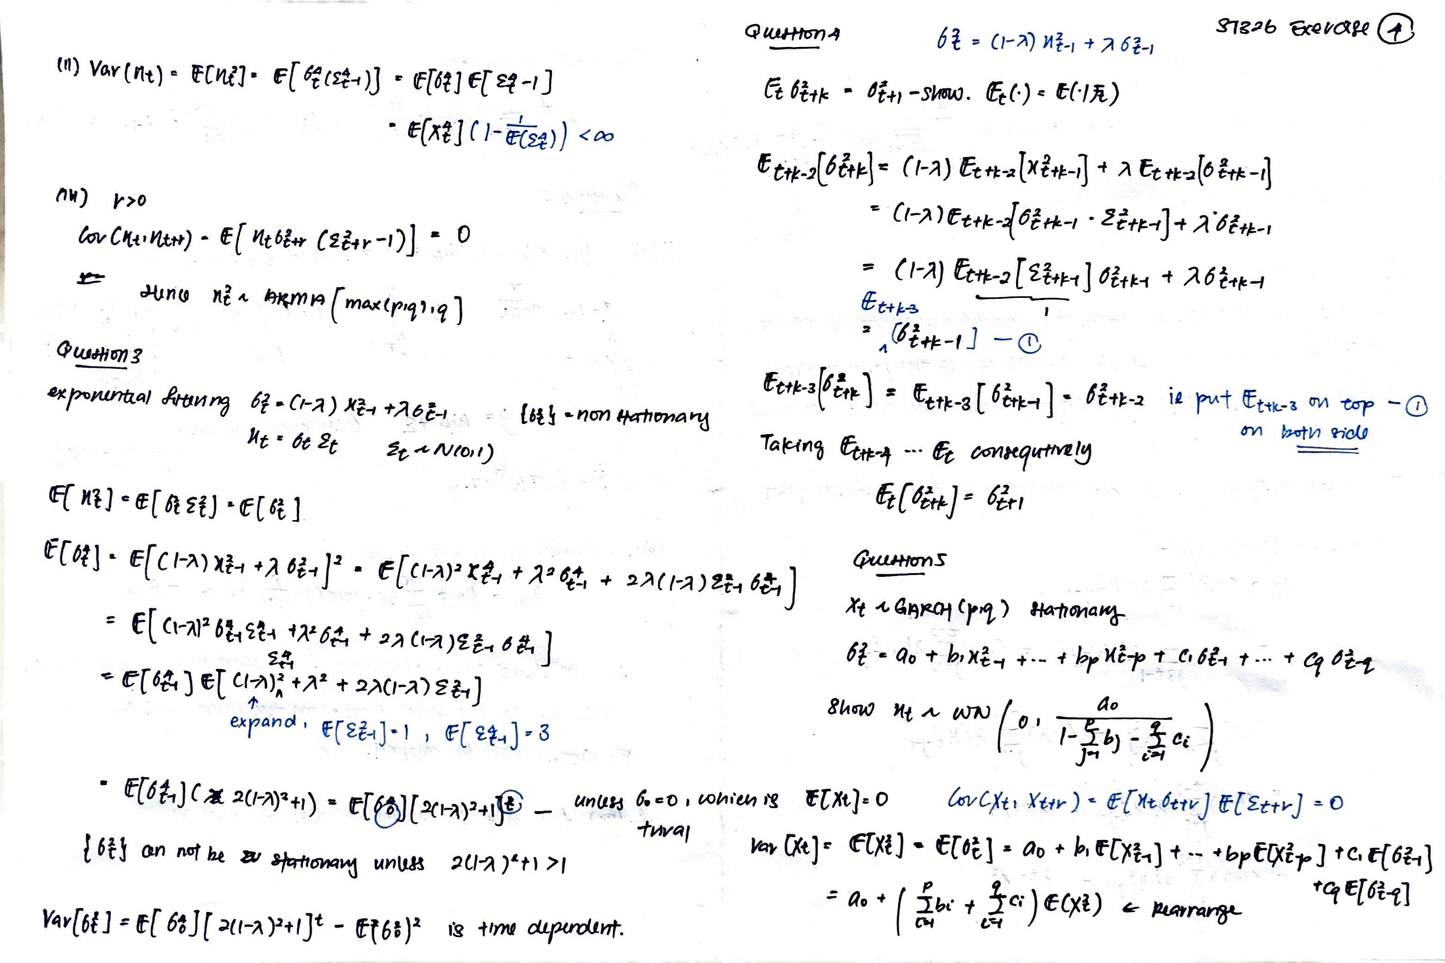 (ii) Var(ηt) = E[ηt²] = E[σt⁴(εt²-1)²] = E[σt⁴] E[εt⁴-1]
= E[Xt⁴] (1 - 1/E(εt⁴)) < ∞
(iii) r>0
Cov(ηt, ηt+r) = E[ηt σ²t+r (ε²t+r -1)] = 0
Hence xt² ~ ARMA[max(p,q), q]
Question 3
exponential σt² = (1-λ) x²t-1 + λσ²t-1 {σt²} = non stationary
xt = σt εt εt ~ N(0,1)
E[xt²] = E[σt² εt²] = E[σt²]
E[σt⁴] = E[(1-λ) x²t-1 + λ σ²t-1]² = E[(1-λ)² x⁴t-1 + λ² σ⁴t-1 + 2λ(1-λ) ε²t-1 σ⁴t-1]
= E[(1-λ)² σ⁴t-1 ε⁴t-1 + λ² σ⁴t-1 + 2λ(1-λ) ε²t-1 σ⁴t-1]
= E[σ⁴t-1] E[(1-λ)² ε⁴t-1 + λ² + 2λ(1-λ) ε²t-1]
↑ expand, E[ε²t-1] = 1, E[ε⁴t-1] = 3
= E[σ⁴t-1] (2(1-λ)²+1) = E[σ0⁴] [2(1-λ)²+1]^t — unless σ0=0, which is
trival
{σt²} can not be stationary unless 2(1-λ)²+1 > 1
Var[σt²] = E[σ0⁴] [2(1-λ)²+1]^t - E[σ0²]² is time dependent.
ST326 Exercise 4
Question 4 σt² = (1-λ) x²t-1 + λσ²t-1
Et σ²t+k = σ²t+1 - show. Et(·) = E(·|Ft)
Et+k-2[σ²t+k] = (1-λ) Et+k-2[x²t+k-1] + λ Et+k-2[σ²t+k-1]
= (1-λ) Et+k-2[σ²t+k-1 · ε²t+k-1] + λ σ²t+k-1
= (1-λ) Et+k-2[ε²t+k-1] σ²t+k-1 + λσ²t+k-1
Et+k-3 1
= [σ²t+k-1] — ①
Et+k-3[σ²t+k] = Et+k-3[σ²t+k-1] = σ²t+k-2 ie put Et+k-3 on top — ①
on both side
Taking Et+k-4 ... Et consequtively
Et[σ²t+k] = σ²t+1
Question 5
Xt ~ GARCH(p,q) stationary
σt² = a0 + b1 x²t-1 + ... + bp x²t-p + c1 σ²t-1 + ... + cq σ²t-q
Show xt ~ WN(0, a0 / (1 - Σ_{j=1}^p bj - Σ_{i=1}^q ci))
E[Xt] = 0 Cov(Xt, Xt+r) = E[xt σt+r] E[εt+r] = 0
Var[Xt] = E[Xt²] = E[σt²] = a0 + b1 E[X²t-1] + ... + bp E[X²t-p] + c1 E[σ²t-1]
+cq E[σ²t-q]
= a0 + (Σ_{i=1}^p bi + Σ_{i=1}^q ci) E(Xt²) ← Rearrange